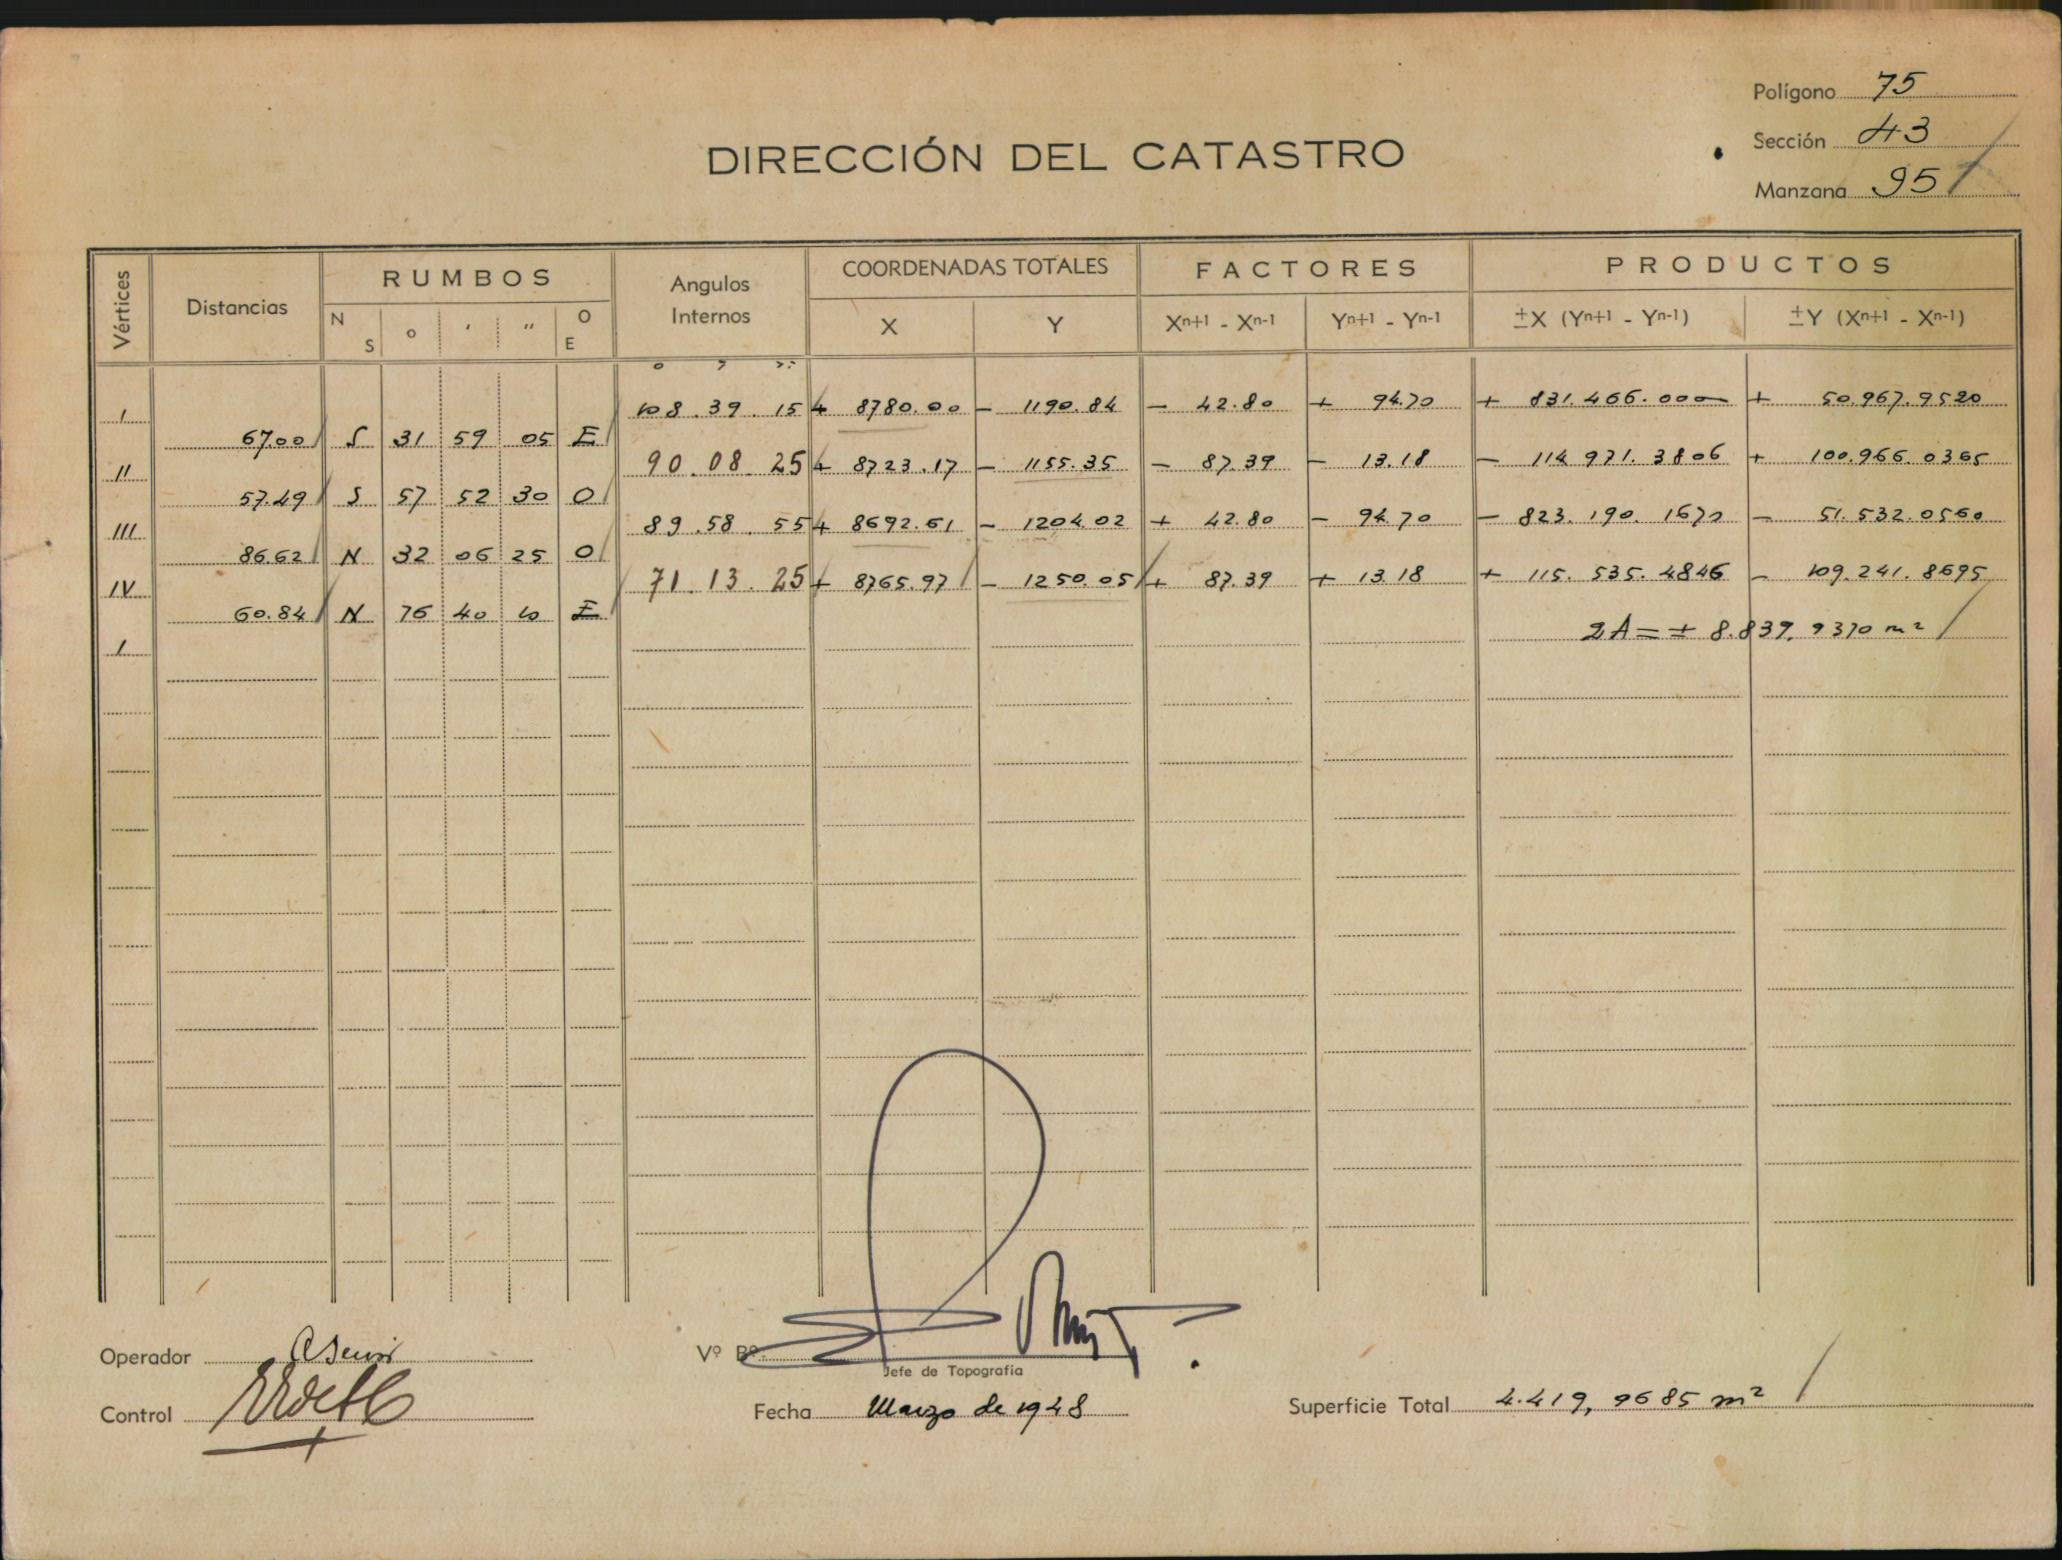 Polígono 75
Sección 43
Manzana 95
DIRECCIÓN DEL CATASTRO
Vértices Distancias RUMBOS Angulos Internos COORDENADAS TOTALES FACTORES PRODUCTOS
N S o ′ ″ O E X Y Xn+1 - Xn-1 Yn+1 - Yn-1 ±X (Yn+1 - Yn-1) ±Y (Xn+1 - Xn-1)
I 108.39.15 + 8780.00 - 1190.84 - 42.80 + 94.70 + 831.466.000 + 50.967.9520
67.00 S 31 59 05 E
II 90.08.25 + 8723.17 - 1155.35 - 87.39 - 13.18 - 114.971.3806 + 100.966.0365
57.49 S 57 52 30 O
III 89.58.55 + 8692.61 - 1204.02 + 42.80 - 94.70 - 823.190.1670 - 51.532.0560
86.62 N 32 06 25 O
IV 71.13.25 + 8765.97 - 1250.05 + 87.39 + 13.18 + 115.535.4846 - 109.241.8695
60.84 N 76 40 10 E
I 2A = + 8.839,9370 m²
Operador
Vº Bº
Jefe de Topografía
Control
Fecha Marzo de 1948
Superficie Total 4.419,9685 m²